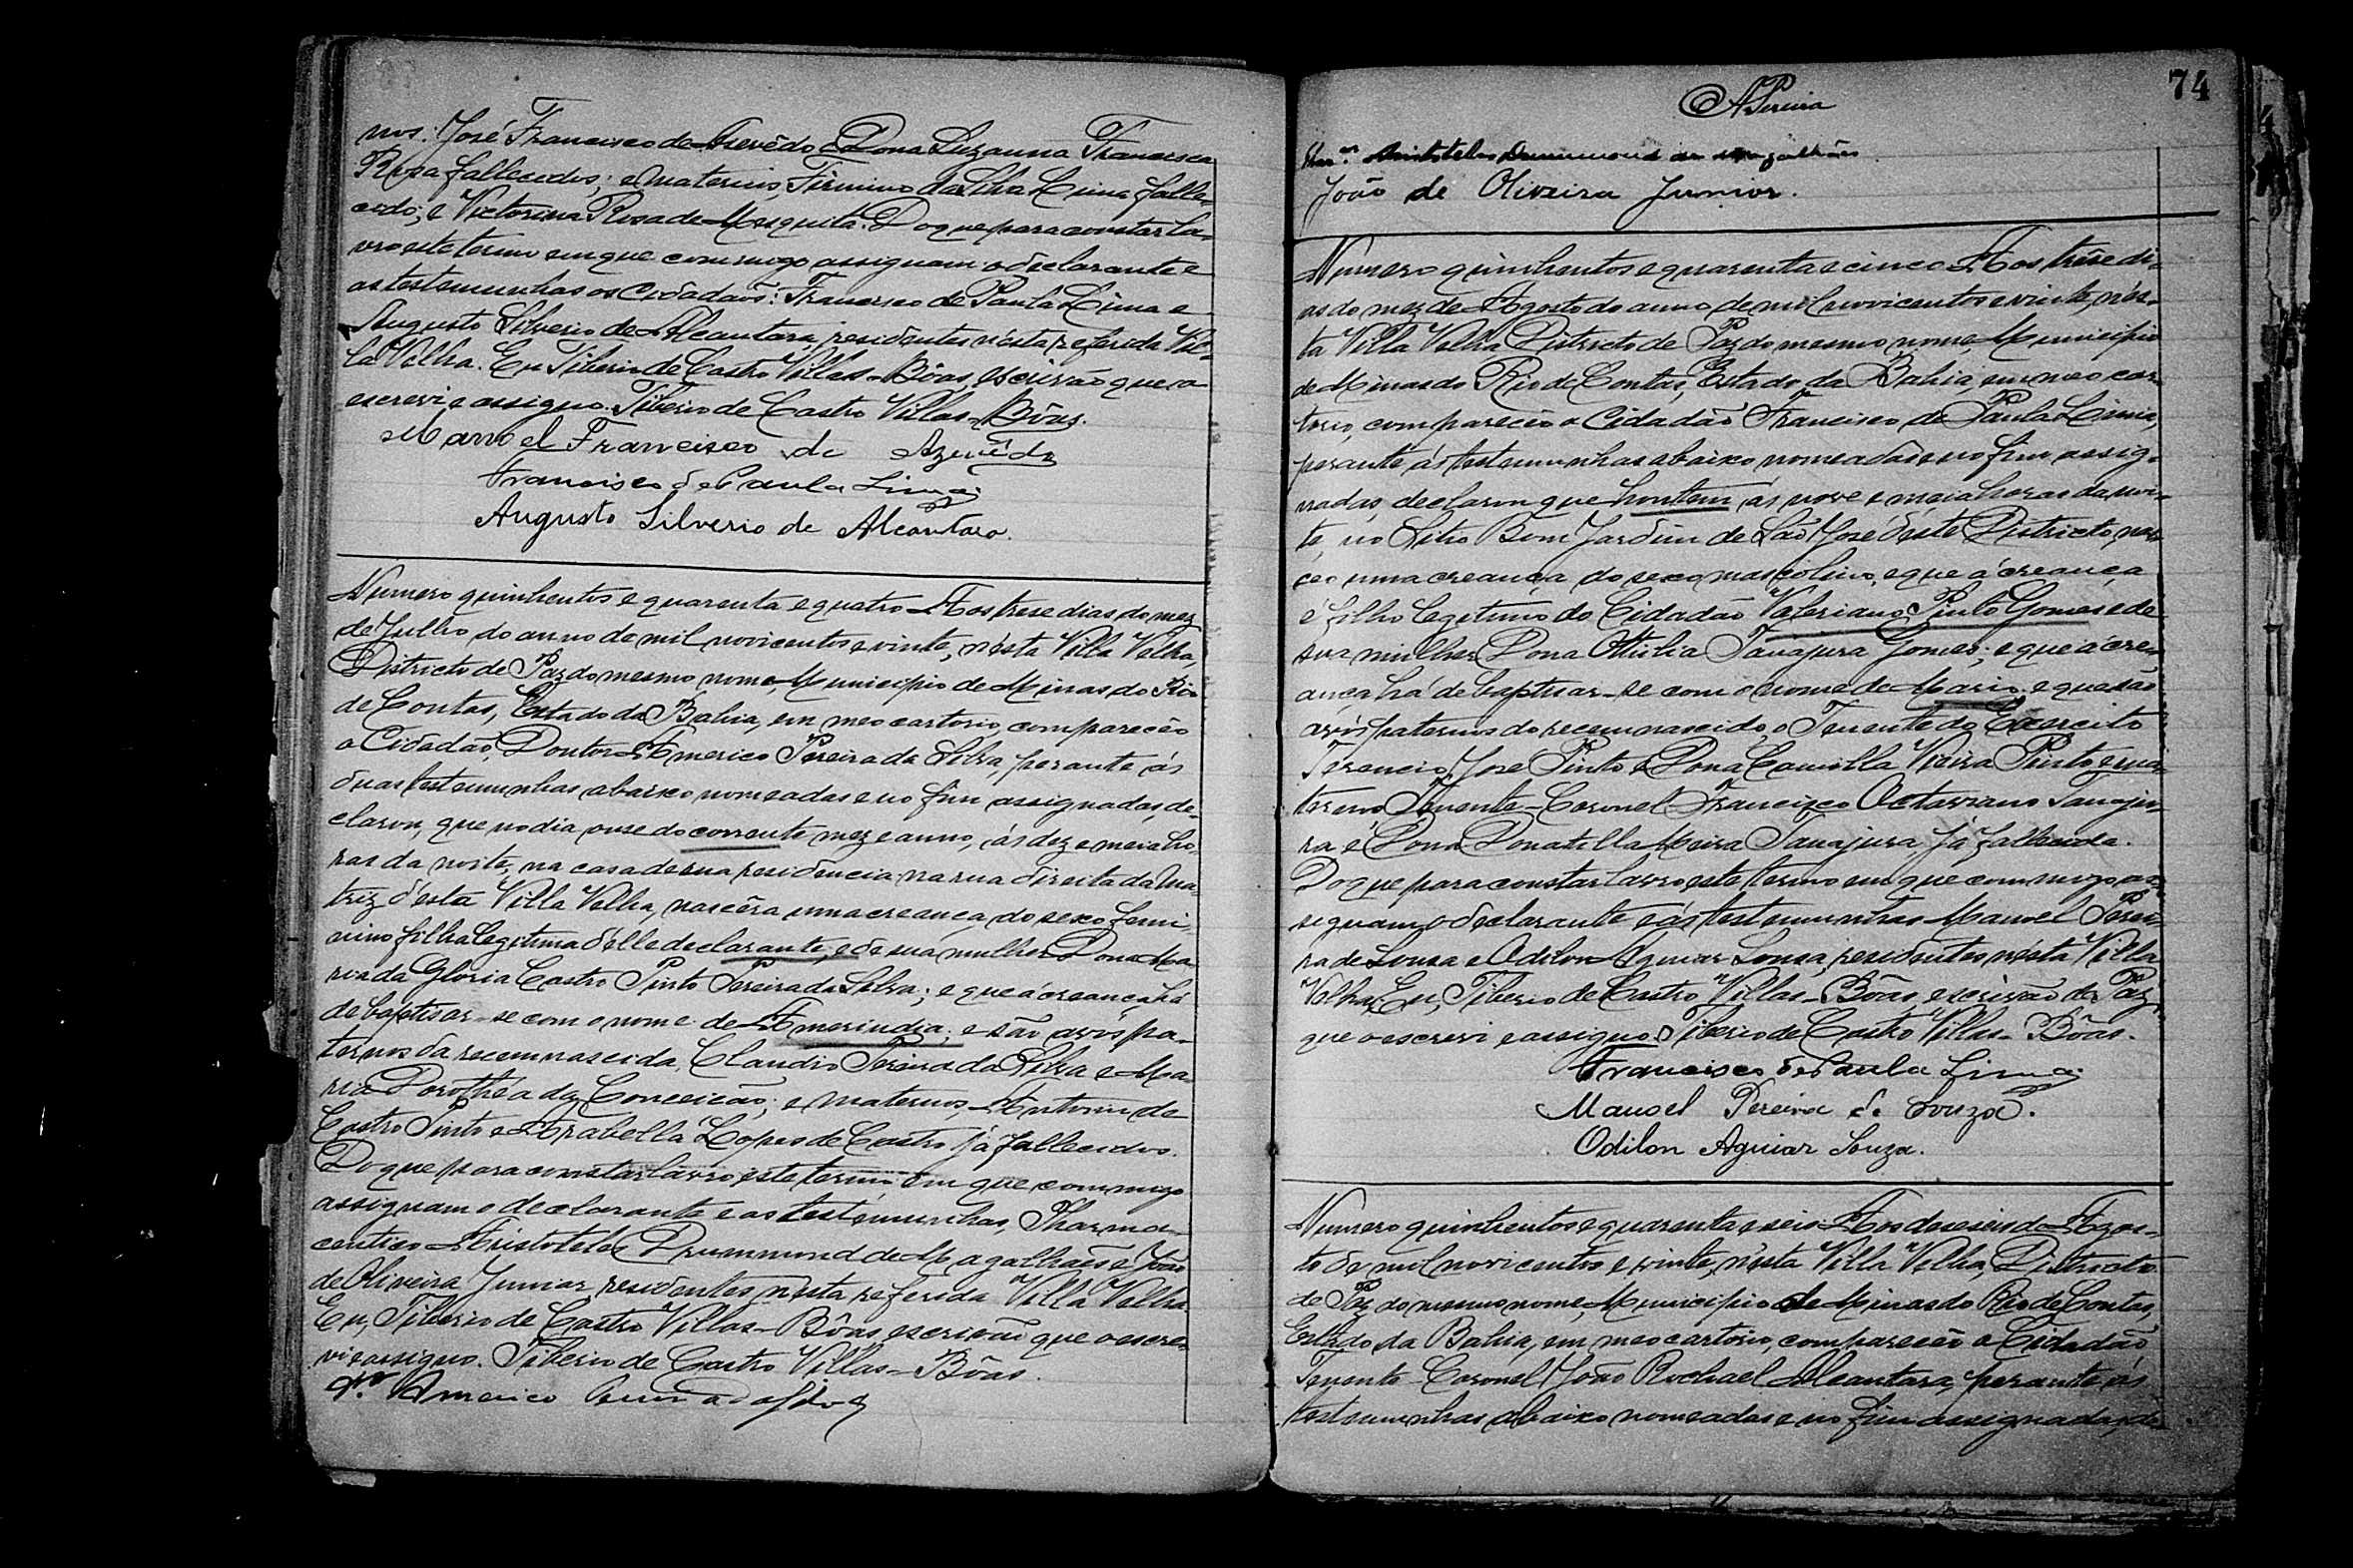 nos: José Francisco de Asevêdo e Dona Luzanna Francisca
Rosa fallecidos; e maternos, Firmino da Silva Lima falle-
cido, e Victorina Rosa de Mesquita. Do que para constar la-
vro este termo em que commigo assignam o declarante e
as testemunhas os Cidadãos: Francisco de Paula Lima e
Augusto Silverio de Alcantara, residentes n'esta referida Vil-
la Velha. Eu Tiberio de Castro Villas-Bôas, escrivão que o
escrevi e assigno. Tiberio de Castro Villas-Bôas.
Manoel Francisco de Azevêdo
Francisco de Paula Lima
Augusto Silverio de Alcantara.
Numero quinhentos e quarenta e quatro Aos trese dias do mez
de Julho do anno de mil novicentos e vinte, n'esta Villa Velha,
Districto de Paz do mesmo nome, Municipio de Minas do Rio
de Contas, Estado da Bahia, em meo cartorio, compareceo
o Cidadão, Doutor Americo Pereira da Silva, perante ás
duas testemunhas abaixo nomeadas e no fim assignadas, de-
clarou, que no dia onse do corrente mez e anno, ás dez e meia ho-
ras da noite, na casa de sua residencia na rua direita da Ma-
triz d'esta Villa Velha, nascêra uma creança do sexo femi-
nino filha legitima d'elle declarante, e de sua mulher Dona Ma-
ria da Gloria Castro Pinto Pereira da Silva; e que á creança há
de baptisar-se com o nome de Amerindia; e são avós pa-
ternos da recemnascida, Claudio Pereira da Silva e Ma-
ria Dorothéa da Conceição; e maternos, Antonio de
Castro Pinto e Arabella Lopes de Castro já fallecidos.
Do que para constar lavro este termo em que commigo
assignam o declarante e as testemunhas, Pharma-
ceutico Aristoteles Drummond de Magalhães e João
de Oliveira Junior, residentes n'esta referida Villa Velha
Eu, Tiberio de Castro Villas-Bôas, escrivão que o escre-
vi e assigno. Tiberio de Castro Villas-Bôas.
Dr. Americo Pereira da Silva
74
APereira
Aristoteles Drummond de Magalhães
João de Oliveira Junior.
Numero quinhentos e quarenta e cinco Aos trese di-
as do mez de Agosto do anno de mil novicentos e vinte, n'es-
ta Villa Velha Districto de Paz do mesmo nome, Municipio
de Minas do Rio de Contas, Estado da Bahia, em meo car-
torio, compareceo o Cidadão Francisco de Paula Lima,
perante ás testemunhas abaixo nomeadas e no fim assig-
nadas, declarou que hontem ás nove e meia horas da noi-
te, no Sitio Bom Jardim de São José d'este Districto, nas-
ceo uma creança do sexo mascolino, e que á creança
é filho legitimo do Cidadão Valeriano Pinto Gomes e de
sua mulher Dona Otulia Tanajura Gomes; e que á cre-
ança há de baptisar-se com o nome de Mario; e que são
avós paternos do recemnascido, o Tenente do Exercito
Terencio José Pinto e Dona Camilla Vieira Pinto e ma-
ternos Tenente-Coronel Francisco Octaviano Tanaju-
ra e Dona Donatilla Meira Tanajura, já fallecida.
Do que para constar lavro este termo em que commigo as-
signam, o declarante e ás testemunhas Manoel Perei-
ra de Sousa e Odilon Aguiar Sousa, residentes n'esta Villa
Velha. Eu, Tiberio de Castro Villas-Bôas, escrivão de Paz
que o escrevi e assigno. Tiberio de Castro Villas-Bôas.
Francisco de Paula Lima
Manoel Pereira de Souza.
Odilon Aguiar Souza.
Numero quinhentos e quarenta e seis Aos deseseis de Agos-
to de mil novicentos e vinte, n'esta Villa Velha, Districto
de Paz do mesmo nome, Municipio de Minas do Rio de Contas,
Estado da Bahia, em meo cartorio, compareceo o Cidadão
Tenente-Coronel João Rochael Alcantara, perante ás
testemunhas abaixo nomeadas e no fim assignadas, de-